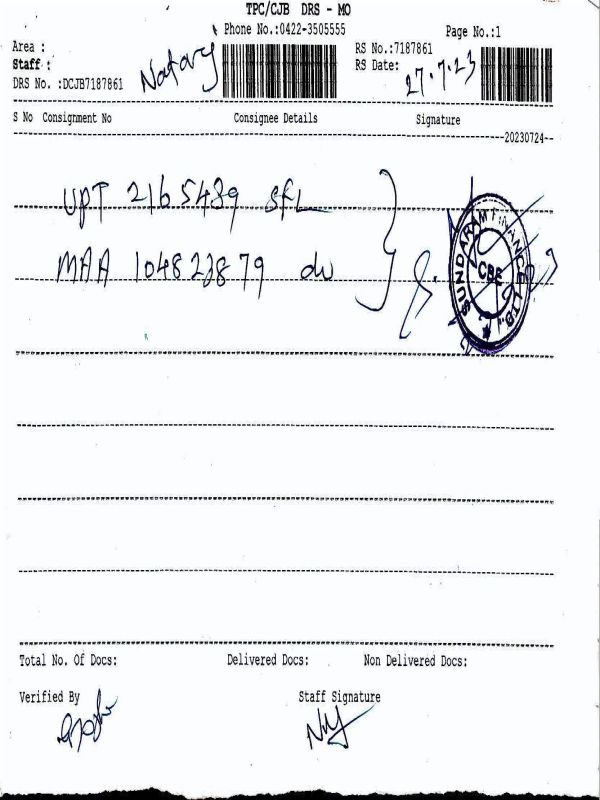 TPC/CJB DRS - MO
Phone No.:0422-3505555
Page No.:1
Area :
Staff :
Nataraj
RS No.:7187861
RS Date:
27.7.23
DRS No. :DCJB7187861
S No Consignment No Consignee Details Signature
20230724
UPT 2165489 SFL
MAA 104823879
SUNDARAM FINANCE LTD.
CBE
Total No. Of Docs: Delivered Docs: Non Delivered Docs:
Verified By Staff Signature